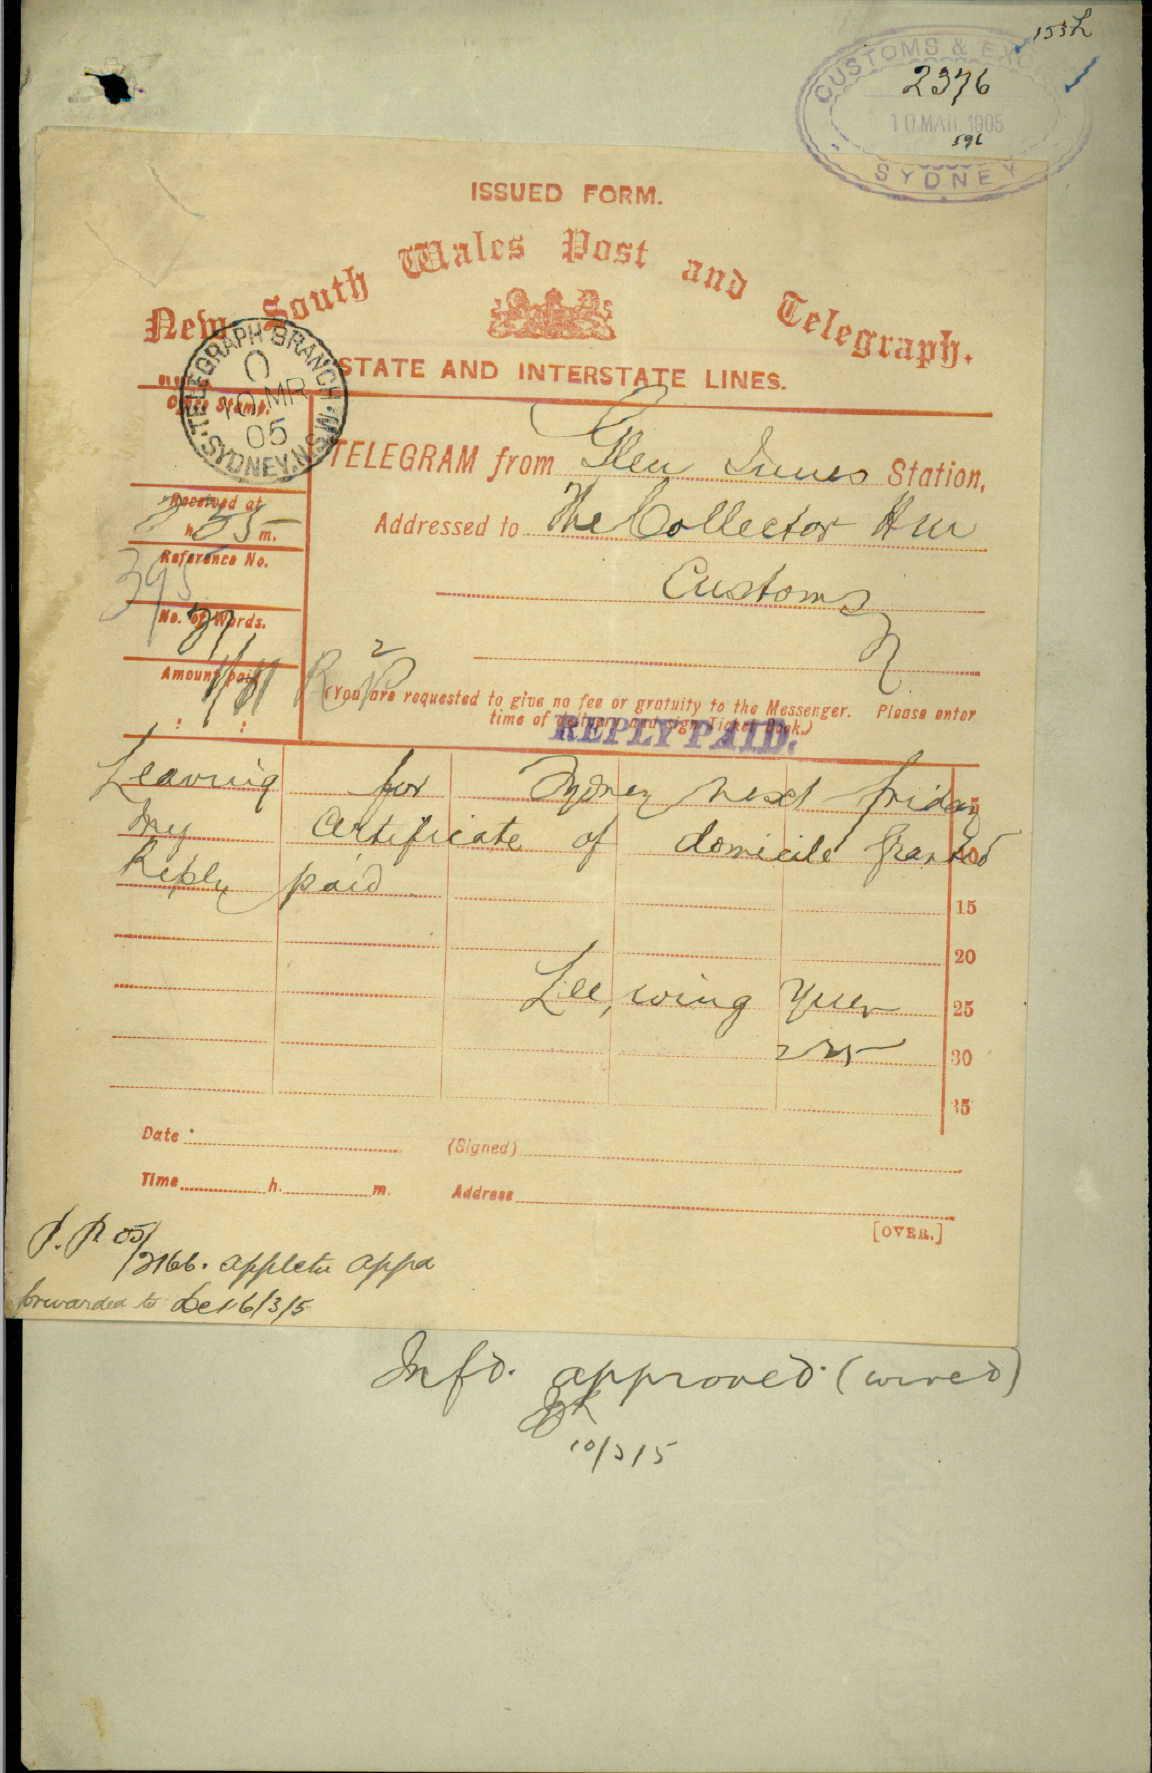 153L
CUSTOMS & EXCISE
2376
10 MAR 1905
596
SYDNEY
ISSUED FORM.
New South Wales Post and Telegraph.
STATE AND INTERSTATE LINES.
TELEGRAPH BRANCH
10 MR
05
SYDNEY.N.S.W
Office Stamp.
TELEGRAM from Glen Innes Station,
Received at
h. 55 m.
Addressed to The Collector HM
Reference No.
395
Customs
No. of Words.
Amount paid
R 2 P
(You are requested to give no fee or gratuity to the Messenger. Please enter
time of delivery and sign Ticket Book.)
REPLY PAID.
Leaving for Sydney next friday 5
my certificate of domicile granted 10
Reply paid 15
20
Lee, wing Yuen 25
30
35
Date (Signed)
Time h. m. Address
[OVER.]
05/
2166. appletn appd
forwarded to 16/3/5
Infd. approved. (wired)
10/3/5